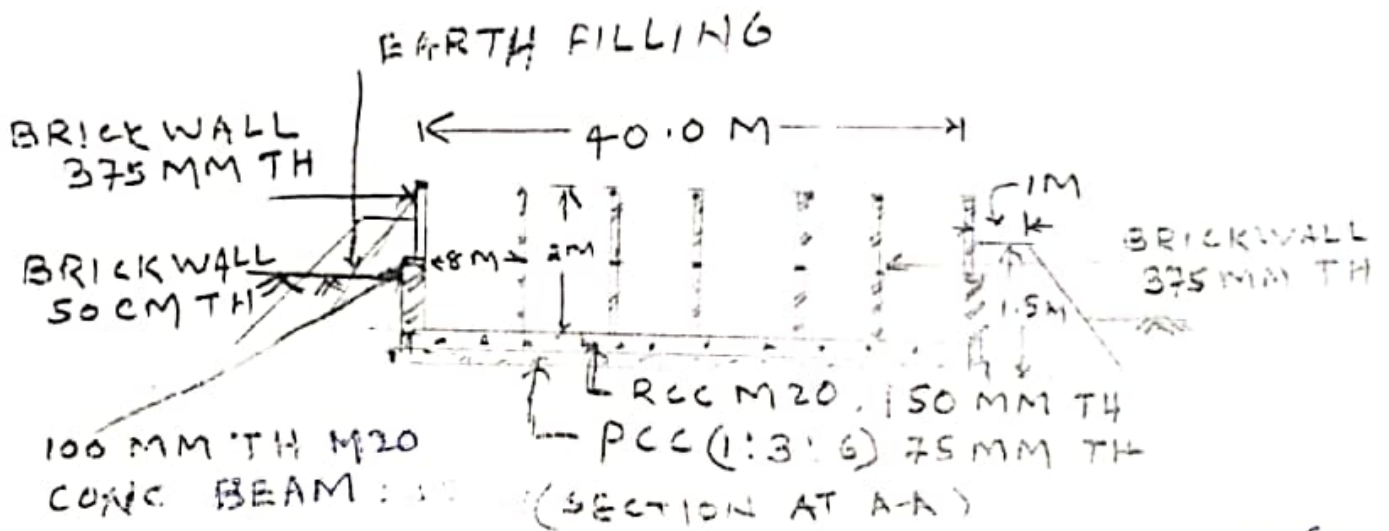 EARTH FILLING
BRICK WALL
375 MM TH
40.0 M
1M
BRICKWALL
50 CM TH
8M
2M
BRICKWALL
375 MM TH
1.5M
RCC M20, 150 MM TH
PCC (1:3:6) 75 MM TH
100 MM TH M20
CONC BEAM:
(SECTION AT A-A)